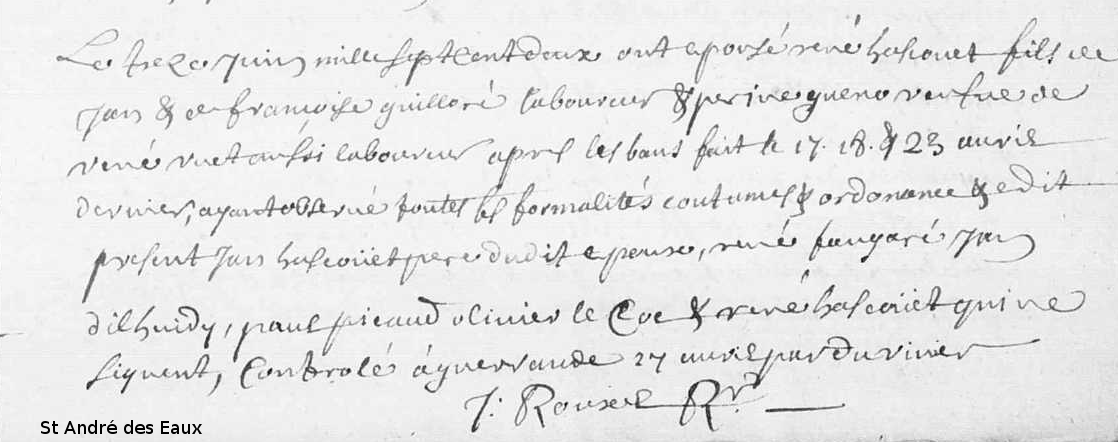 Le treze Juin mille sept cent deux ont eporsé rené hascouet fils de
Jan & de francoise guilloré laboureur & perine gueno vefue de
rené ruet aussi laboureur apres les bans fait le 17. 18. & 23 avril
dernier, ayant observé toutes les formalités coutumes & ordonance & edit
present Jan hascoüet pere dudit epoux, rené fangaré Jan
dilhuidy, paul picaud olivier le Coe & rené hascoüet qui ne
signent, Controlé à guerrande 27 avril par du rivier
J: Rouxel Rr
St André des Eaux